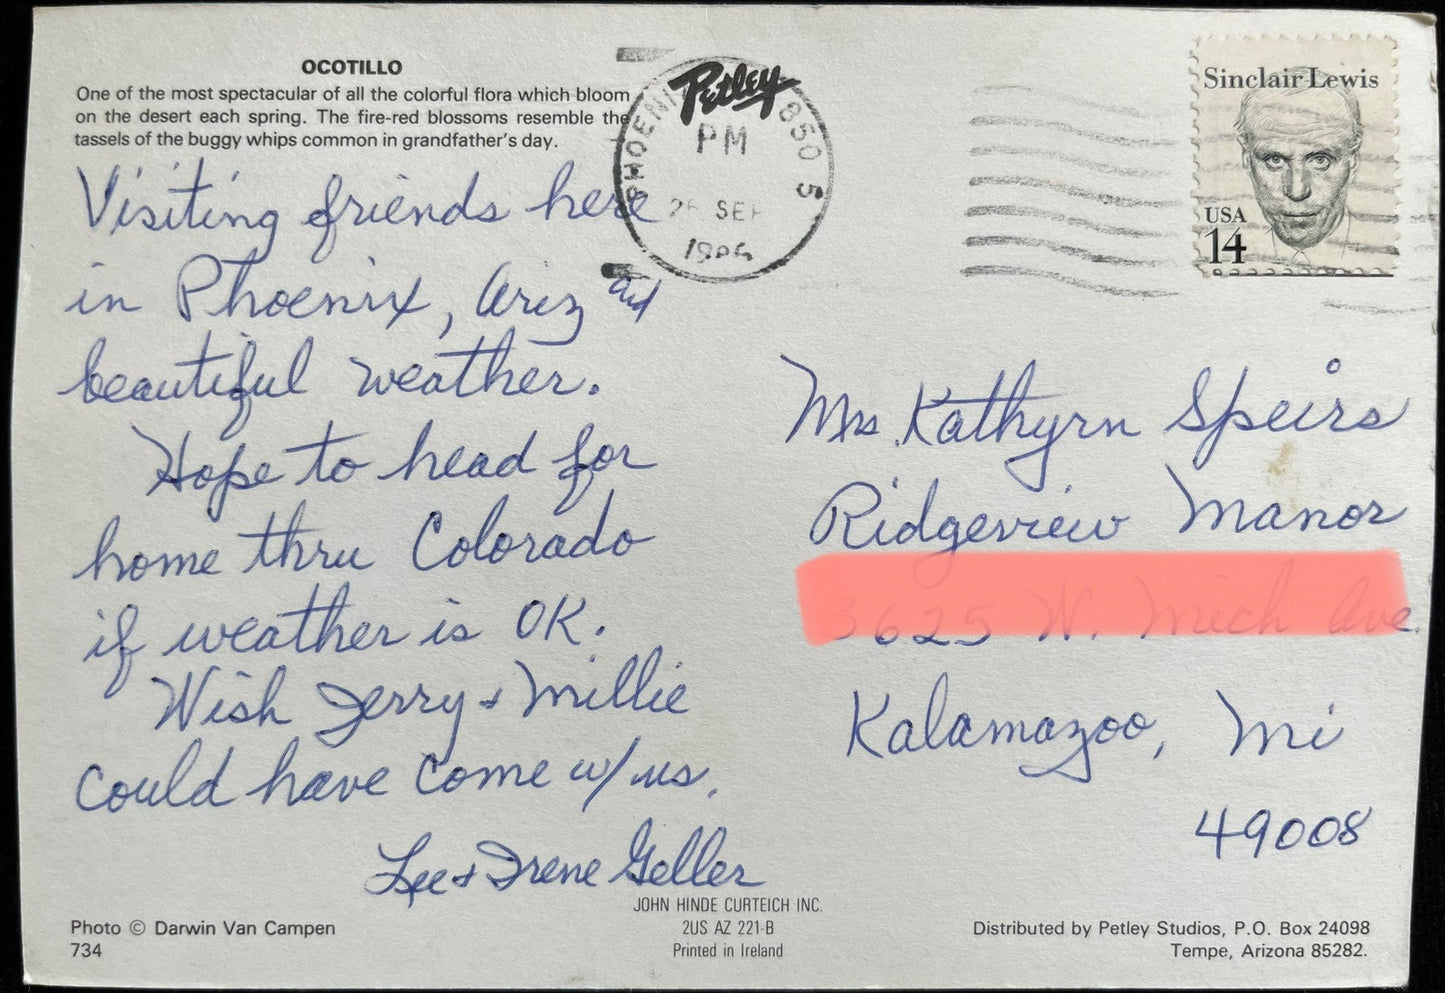 OCOTILLO
One of the most spectacular of all the colorful flora which bloom
on the desert each spring. The fire-red blossoms resemble the
tassels of the buggy whips common in grandfather's day.
Petley
PHOENIX 850 5
PM
SEP
Sinclair Lewis
USA
14
Visiting friends here
in Phoenix, Ariz and
beautiful weather.
Hope to head for
home thru Colorado
if weather is OK.
Wish Jerry + Millie
could have come w/ us.
Lee + Irene Geller
Mrs. Kathyrn Speirs
Ridgeview Manor
Kalamazoo, Mi
49008
Photo © Darwin Van Campen
734
JOHN HINDE CURTEICH INC.
2US AZ 221-B
Printed in Ireland
Distributed by Petley Studios, P.O. Box 24098
Tempe, Arizona 85282.